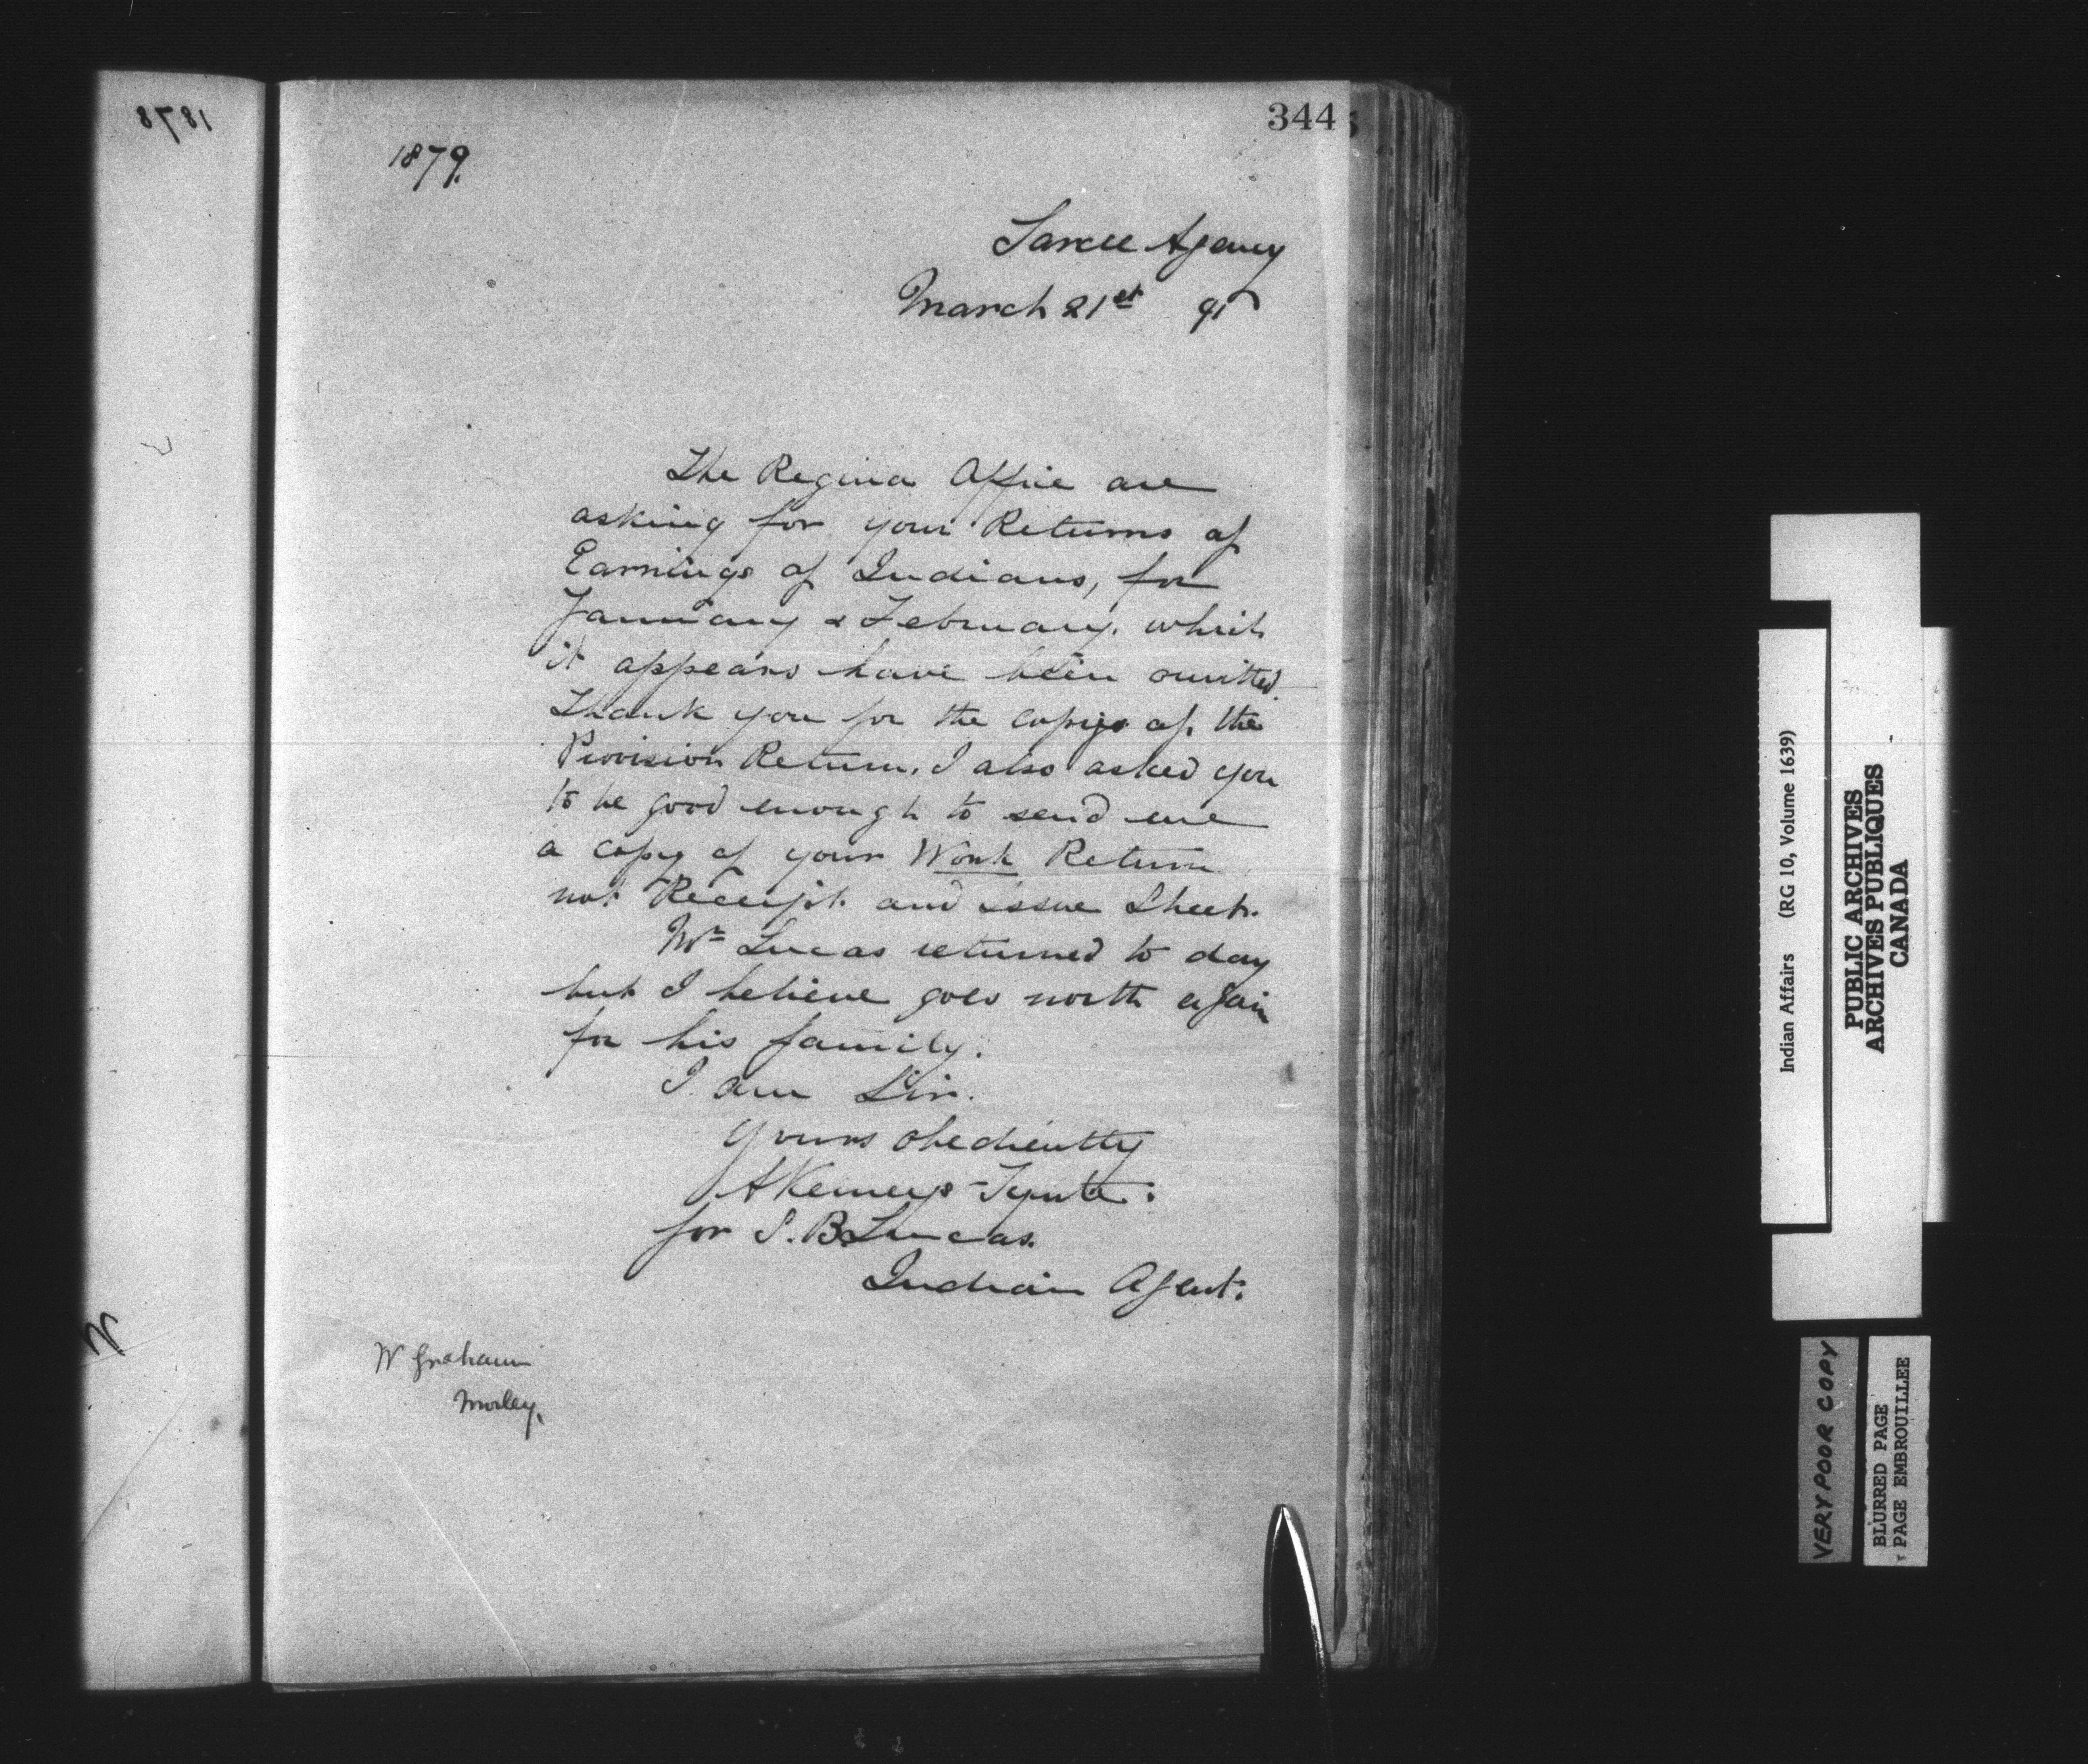 1878
344
1879.
Sarcee Agency
March 21st 95
The Regina Office are
asking for your Returns of
Earnings of Indians, for
January & February. which
it appears have been omitted.
Thank you for the copies of the
Provision Return. I also asked you
to be good enough to send me
a copy of your Work Return
not Receipt and issue Sheet.
Mr Lucas returned to day
but I believe goes north again
for his family.
I am Sir.
Yours obediently
A Kemeys-Tynte.
for S. B. Lucas.
Indian Agent.
W Graham
Morley.
Indian Affairs (RG 10, Volume 1639)
PUBLIC ARCHIVES
ARCHIVES PUBLIQUES
CANADA
VERY POOR COPY
BLURRED PAGE
PAGE EMBROUILLEE